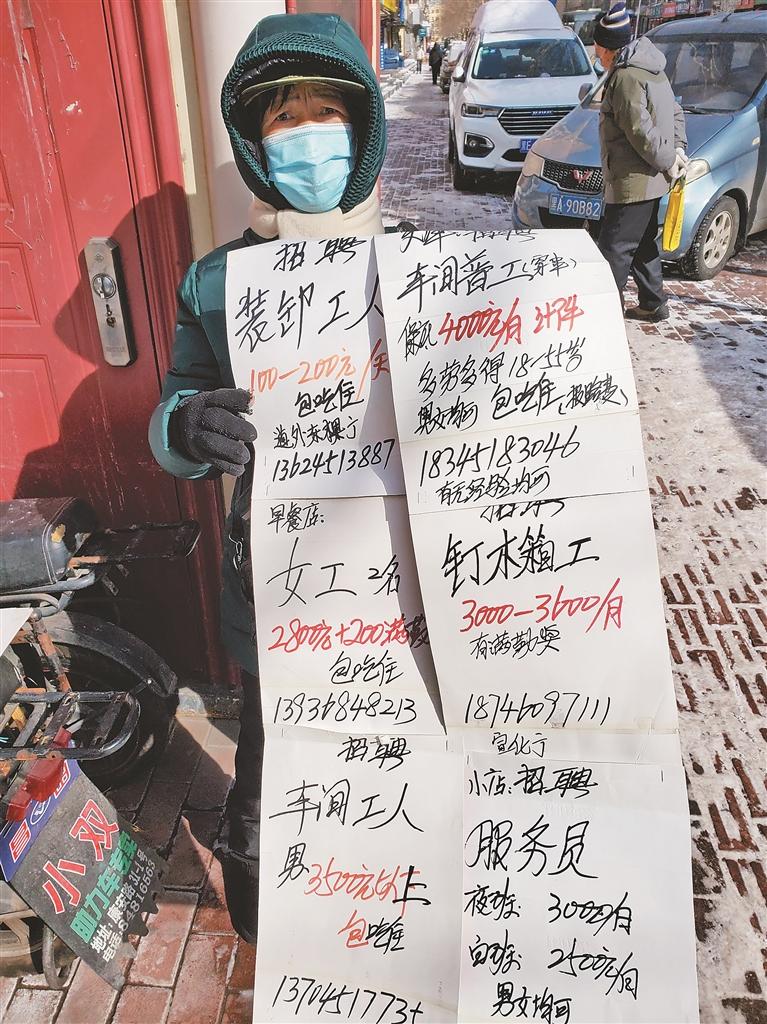 招聘
装卸工人
100-200元/天
包吃住
13624513887
车间普工
4000元/月
多劳多得 18-55岁
男女均可 包吃住(报路费)
18345183046
有无经验均可
早餐店:
女工 2名
2800元+200满勤
包吃住
13936848213
招聘
钉木箱工
3000-3600/月
有满勤奖
18746097111
招聘
车间工人
男 3500元以上
包吃住
1370451773
宣化
小店: 招聘
服务员
夜班: 3000/月
白班: 2500元/月
男女均可
小双
助力车
地址:康安路31-1号
黑A 90B82